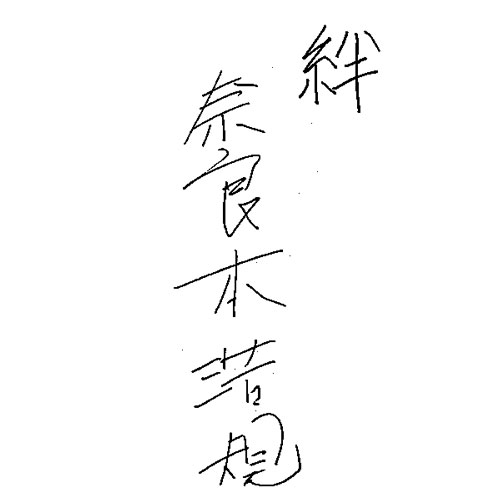 絆
奈良木浩規